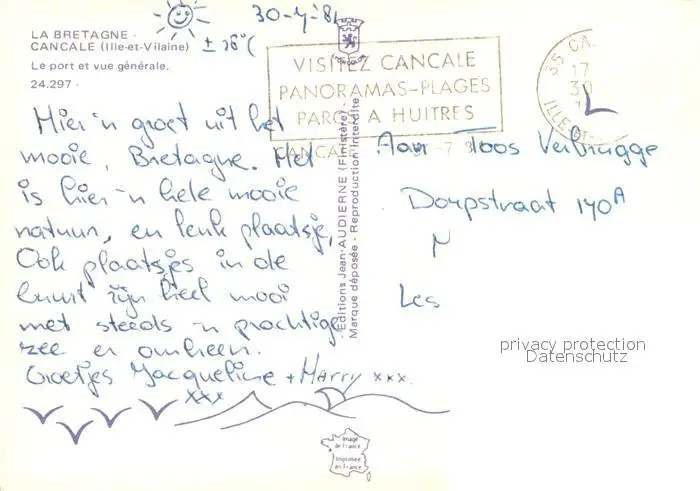 LA BRETAGNE -
CANCALE (Ille-et-Vilaine)
Le port et vue générale.
24.297 -
30-7-'81
VISITEZ CANCALE
PANORAMAS-PLAGES
PARC A HUITRES
35 CA
17
30
ILLE
Hier 'n groet uit het
mooie, Bretagne. Het
is hier 'n hele mooie
natuur, en leuk plaatsje,
Ook plaatsjes in de
buurt zijn heel mooi
met steeds 'n prachtige
zee er omheen.
Groetjes Jacqueline + Harry xxx.
xxx
Editions Jean AUDIERNE (Finistère) -
Marque déposée - Reproduction Interdite
Aan Toos Verbrugge
Dorpstraat 140A
Les
privacy protection
Datenschutz
Image
de France
Imprimée
en France